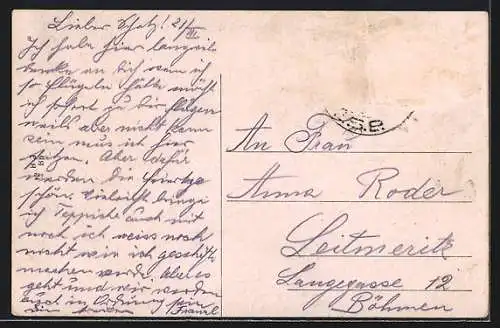 Lieber Schatz! 21/III
Ich habe hier langeile
denke an Dich wen ich
so Flügeln hätte möcht
ich sofort zu Dir flügen
weils aber nicht kann
sein mus ich hir
Aber dafür
werden die feiertage
schön. Vieleicht bringe
ich Teppiche auch mit
noch ich weiss noch
nicht wie ich geschäft
machen werde. Aber es
geht und wir werden
auch in Ordnung sein
Franzl
S.e.
An Frau
Anna Roder
Leitmeritz
Langegasse 12
Böhmen